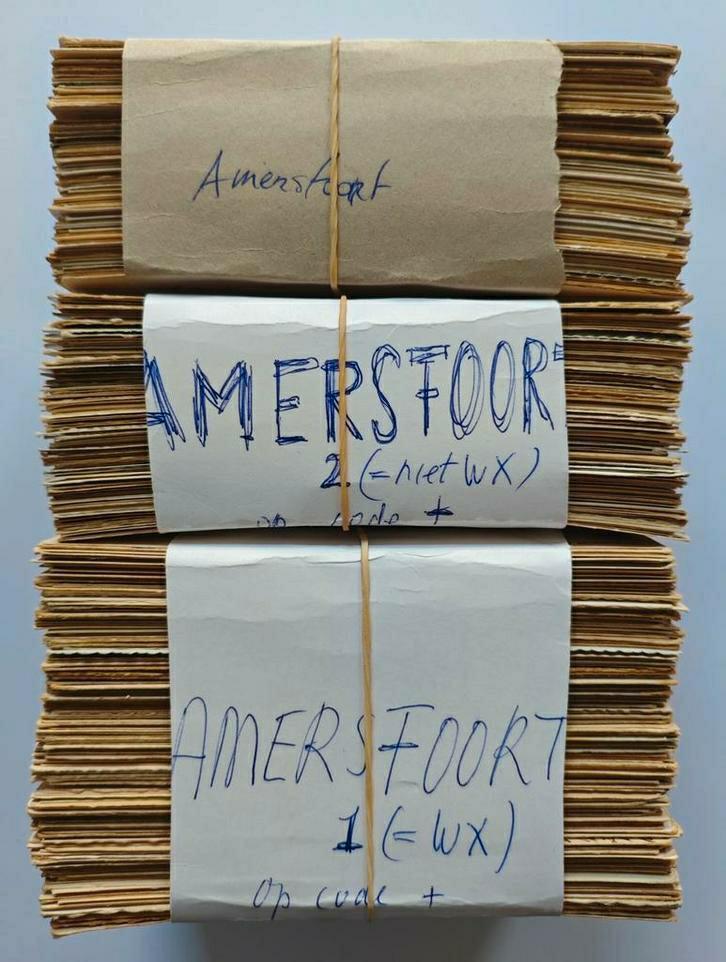 Amersfoort
AMERSFOORT
2 (= niet WX)
op code +
AMERSFOORT
1 (= WX)
op code +